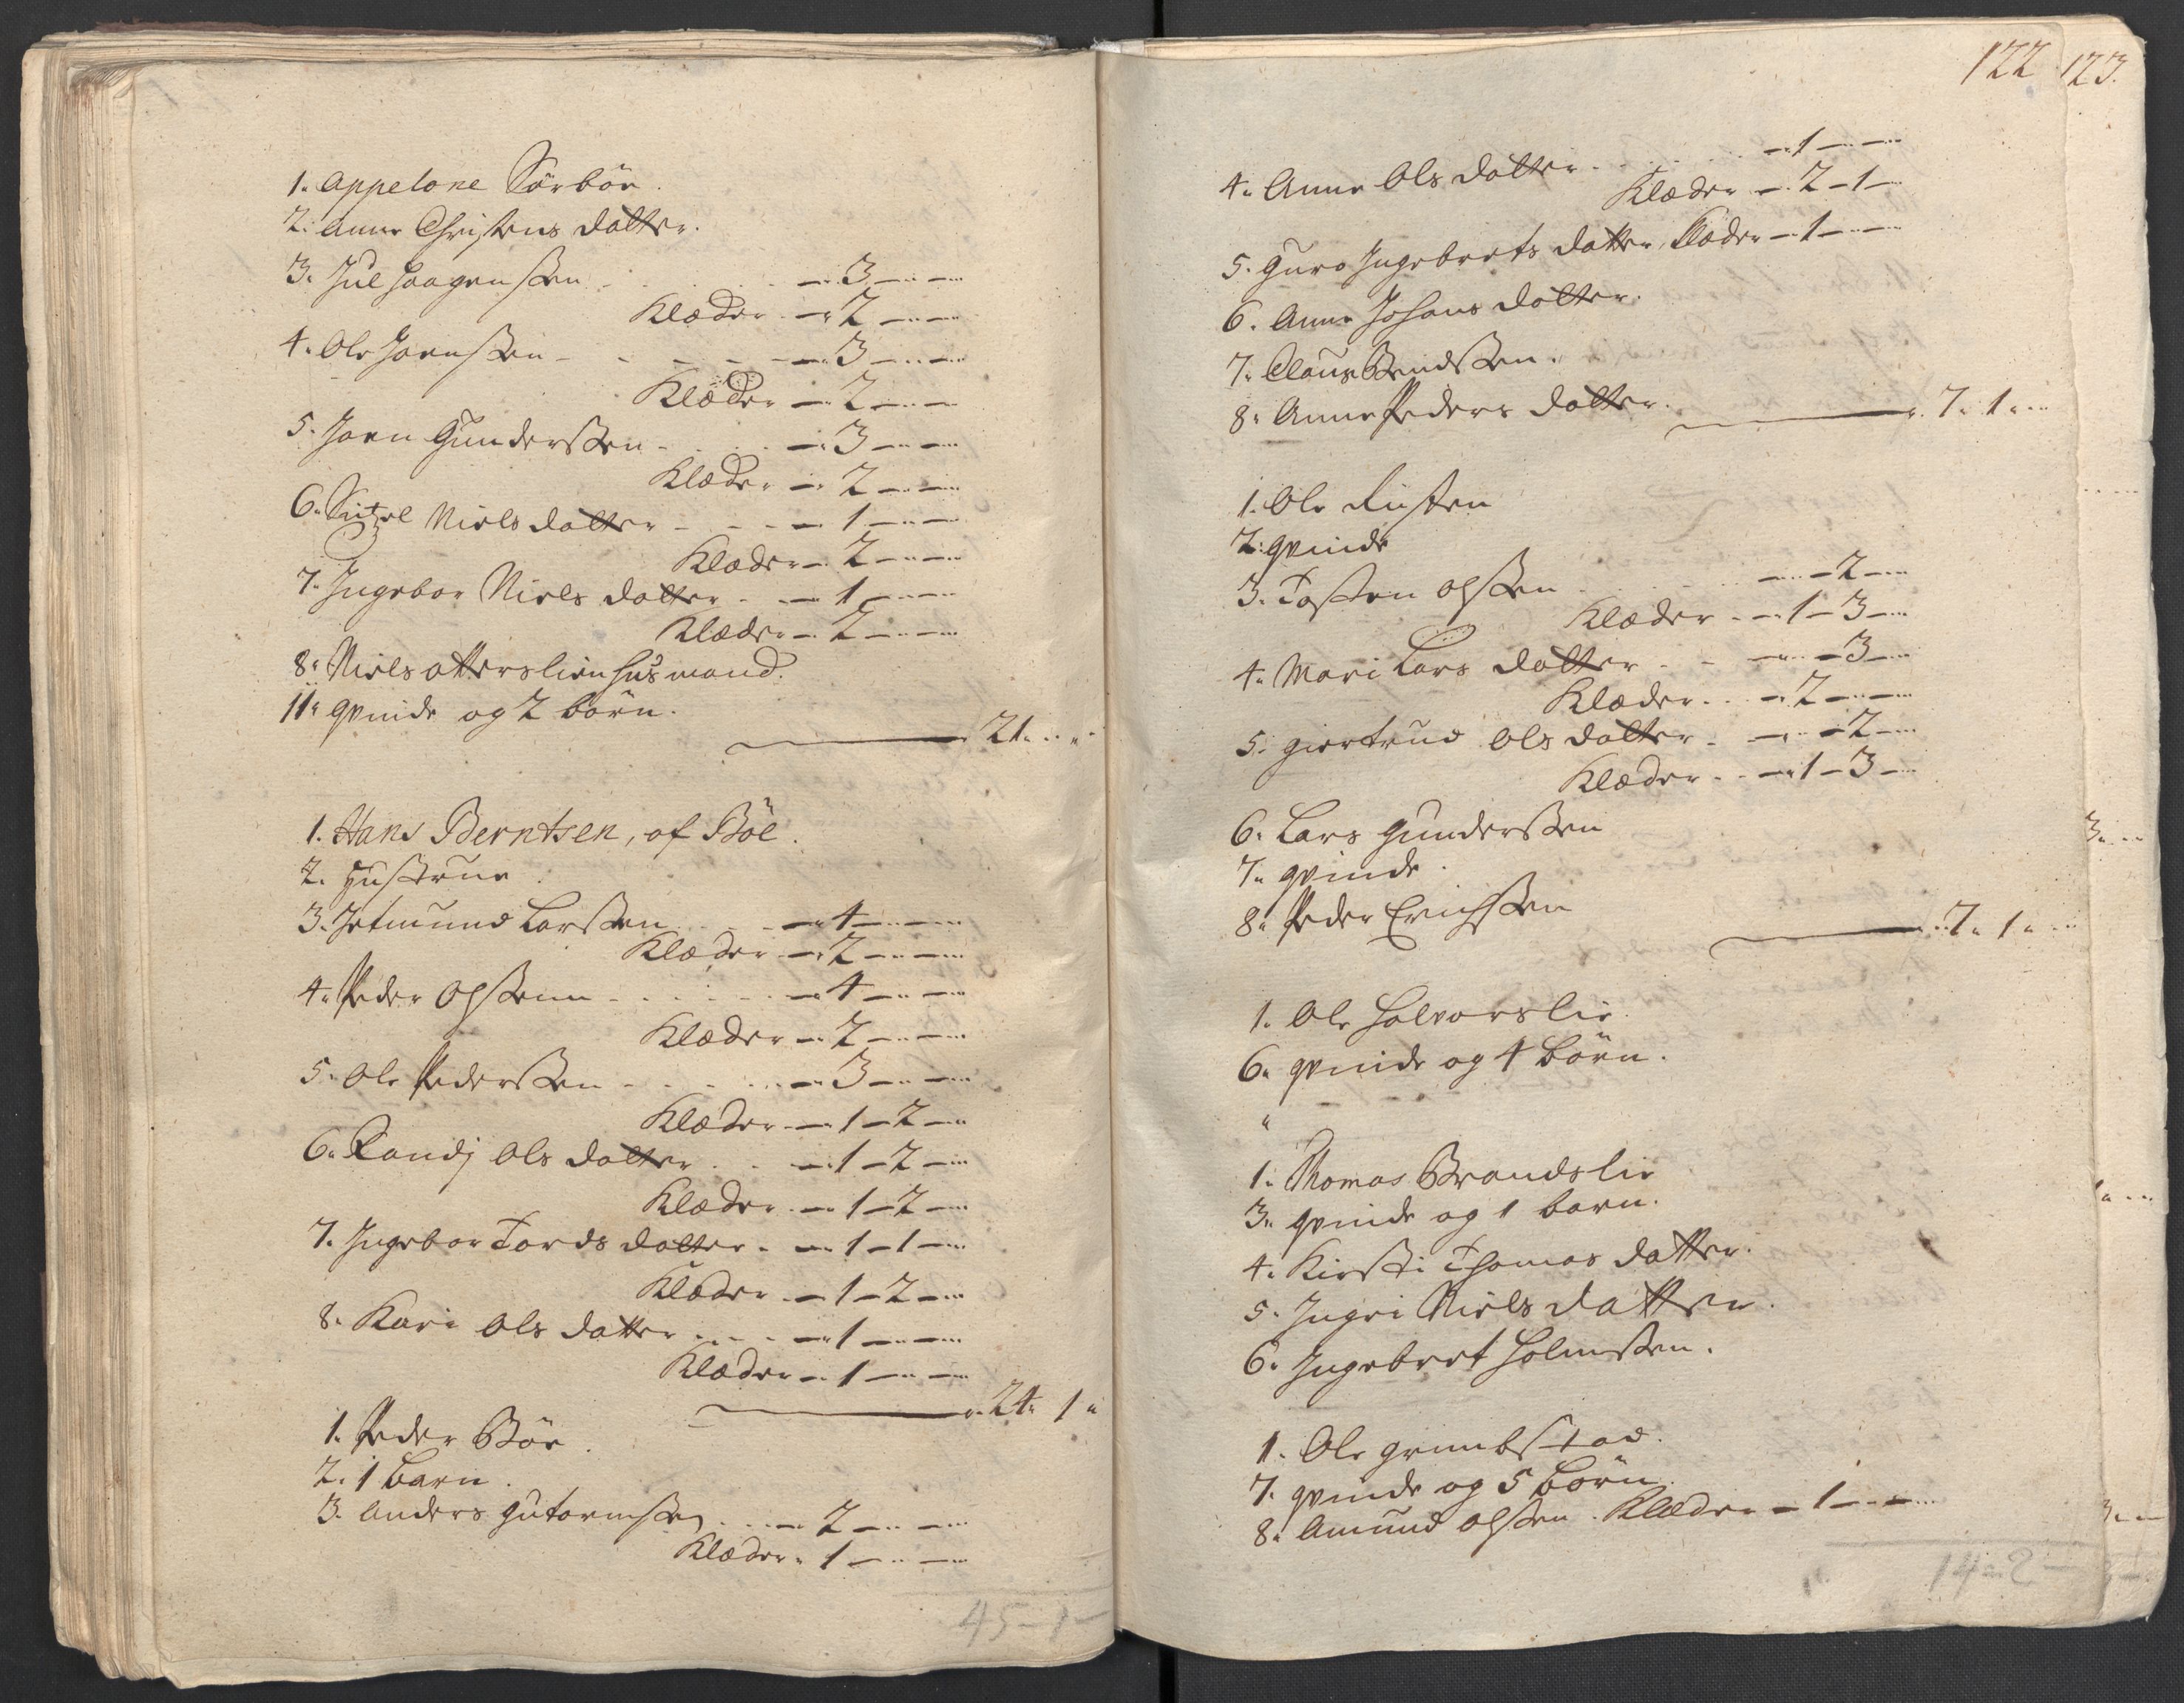 1. Appelone Sörböe.
2. Anne Christens datter.
3. Jul Haagenssen - 3 -
Klæder - 2 -
4. Ole Joenssen - 3 -
Klæder - 2 -
5. Joen Gunderssen - 3 -
Klæder - 2 -
6. Sitzel Niels datter - 1 -
Klæder - 2 -
7. Ingebor Niels datter - 1 -
Klæder - 2 -
8. Niels Atterslien husmand.
11. qvinde og 2 börn.
21.
1. Hans Berntsen, af Böe.
2. Hustrue.
3. Jetmund Larssen - 4 -
Klæder - 2 -
4. Peder Olssenn - 4 -
Klæder - 2 -
5. Ole Pederssen - 3 -
Klæder - 1 - 2 -
6. Randj Ols datter - 1 - 2 -
Klæder - 1 - 2 -
7. Ingebor Tords datter - 1 - 1 -
Klæder - 1 - 2 -
8. Kari Ols datter - 1 -
Klæder - 1 -
24. 1.
1. Peder Böe.
2. 1 barn.
3. Anders Gutormssen - 2 -
Klæder - 1 -
45 - 1 -
122
123.
4. Anne Ols datter - 1 -
Klæder - 2 - 1 -
5. Guro Ingebrets datter, Klæder - 1 -
6. Anne Johans datter.
7. Claus Bendssen.
8. Anne Peders datter.
7. 1.
1. Ole Rusten
2. qvinde
3. Tosten Olssen - 2 -
Klæder - 1 - 3 -
4. Mari Lars datter - 3 -
Klæder - 2 -
5. giertrud Ols datter - 2 -
Klæder - 1 - 3 -
6. Lars Gunderssen
7. qvinde.
8. Peder Erichssen
7. 1.
1. Ole Halvorslie.
6. qvinde og 4 börn.
1. Thomas Brandslie
3. qvinde og 1 barn.
4. Kirsti Thomas datter.
5. Ingri Niels datter.
6. Ingebret Holmssen.
1. Ole grimbstad.
7. qvinde og 5 börn.
8. Amund Olssen. Klæder - 1 -
14 - 2 -